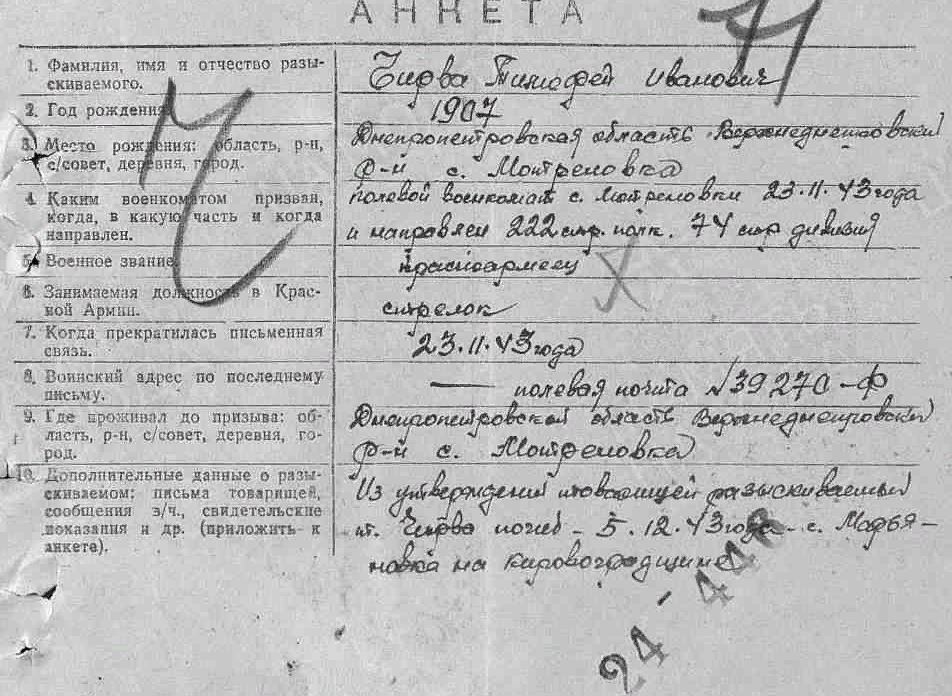 АНКЕТА
1. Фамилия, имя и отчество разы-
скиваемого.
Чирва Тимофей Иванович
2. Год рождения
1907
3. Место рождения: область, р-н,
с/совет, деревня, город.
Днепропетровская область Верхнеднепровский
р-й с. Мотреновка
4. Каким военкоматом призван,
когда, в какую часть и когда
направлен.
полевой военкомат с. Мотреновки 23.11.43 года
и направлен 222 стр. полк. 74 стр дивизия
5. Военное звание
красноармеец
6. Занимаемая должность в Крас-
ной Армии.
стрелок
7. Когда прекратилась письменная
связь.
23.11.43 года
8. Воинский адрес по последнему
письму.
— полевая почта №39270-Ф
9. Где проживал до призыва: об-
ласть, р-н, с/совет, деревня, го-
род.
Днепропетровской область Верхнеднепровский
р-й с. Мотреновка
10. Дополнительные данные о разы-
скиваемом: письма товарищей,
сообщения в/ч., свидетельские
показания и др. (приложить к
анкете).
Из утверждений товарищей разыскиваемый
т. Чирва погиб - 5.12.43 года - с. Марья-
новка на кировоградщине
24-446